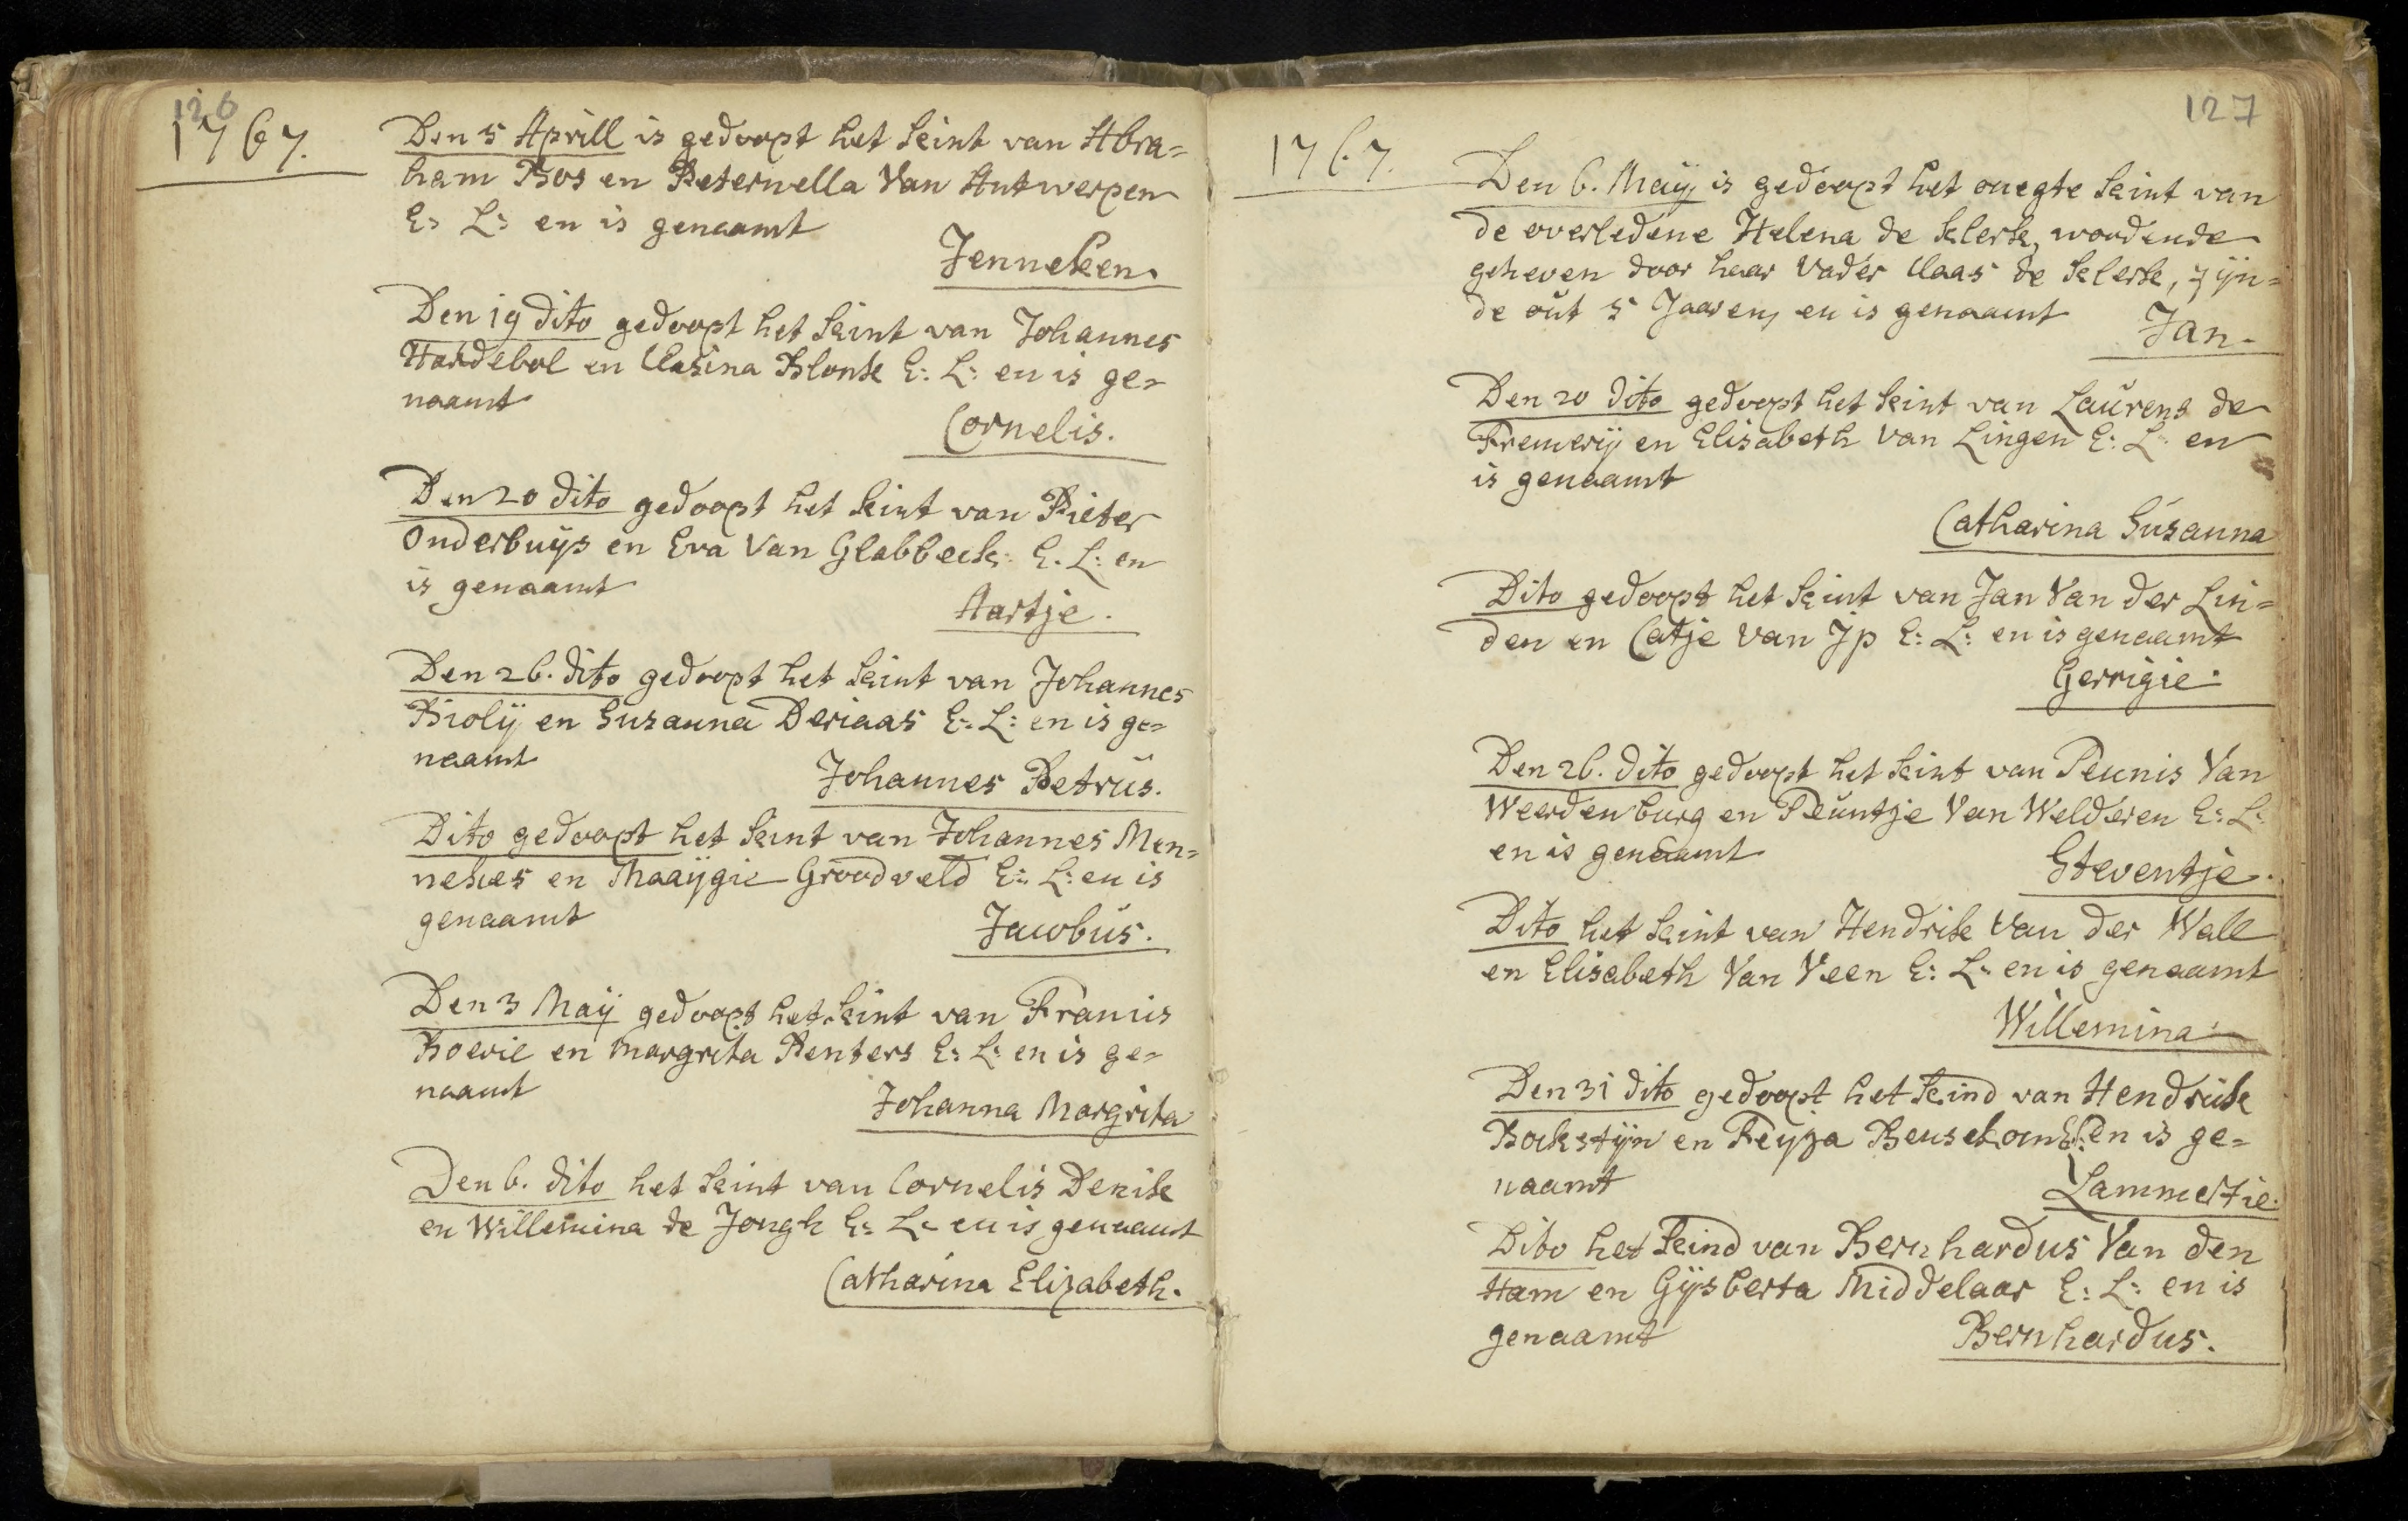 126
1767.
Den 5 Aprill is gedoopt het kint van Abra=
ham Bos en Peternella Van Antwerpen
E: L: en is genaamt
Jenneken.
Den 19 dito gedoopt het kint van Johannes
Hardebol en Clasina Blonk E: L: en is ge=
naamt
Cornelis.
Den 20 dito gedoopt het kint van Pieter
Onderbuijs en Eva Van Glabbeek: E. L: en
is genaamt
Aartje.
Den 26. dito gedoopt het kint van Johannes
Piolij en Susanna Deriaas E: L: en is ge=
naamt
Johannes Petrus.
Dito gedoopt het kint van Johannes Men=
nekes en Maaijgie Groodveld E: L: en is
genaamt
Jacobus.
Den 3 Maij gedoopt het kint van Francis
Boerie en Margrita Penters E: L: en is ge=
naamt
Johanna Margrita
Den 6. dito het kint van Cornelis Denik
en Willemina de Jongh E: L: en is genaamt
Catharina Elizabeth.
127
1767.
Den 6. Maij is gedoopt het onegte kint van
de overledene Helena de klerk, wordende
geheven door haar Vader Claas de klerk, zijn=
de out 5 Jaaren, en is genaamt
Jan.
Den 20 dito gedoopt het kint van Laurens de
Fremerij en Elisabeth van Lingen E: L: en
is genaamt
Catharina Susanna
Dito gedoopt het kint van Jan Van der Lin=
den en Catje Van Jp E: L: en is genaamt
Gerrigie.
Den 26. dito gedoopt het kint van Teunis Van
Weerdenburg en Teuntje Van Welderen E: L:
en is genaamt
Steventje.
Dito het kint van Hendrik Van der Wall
en Elisabeth Van Veen E: L: en is genaamt
Willemina
Den 31 dito gedoopt het kind van Hendrik
Bokstijn en Feyja Beusekom E: L: en is ge=
naamt
Lammertie.
Dito het kind van Bernhardus Van den
Ham en Gijsberta Middelaar E: L: en is
genaamt
Bernhardus.